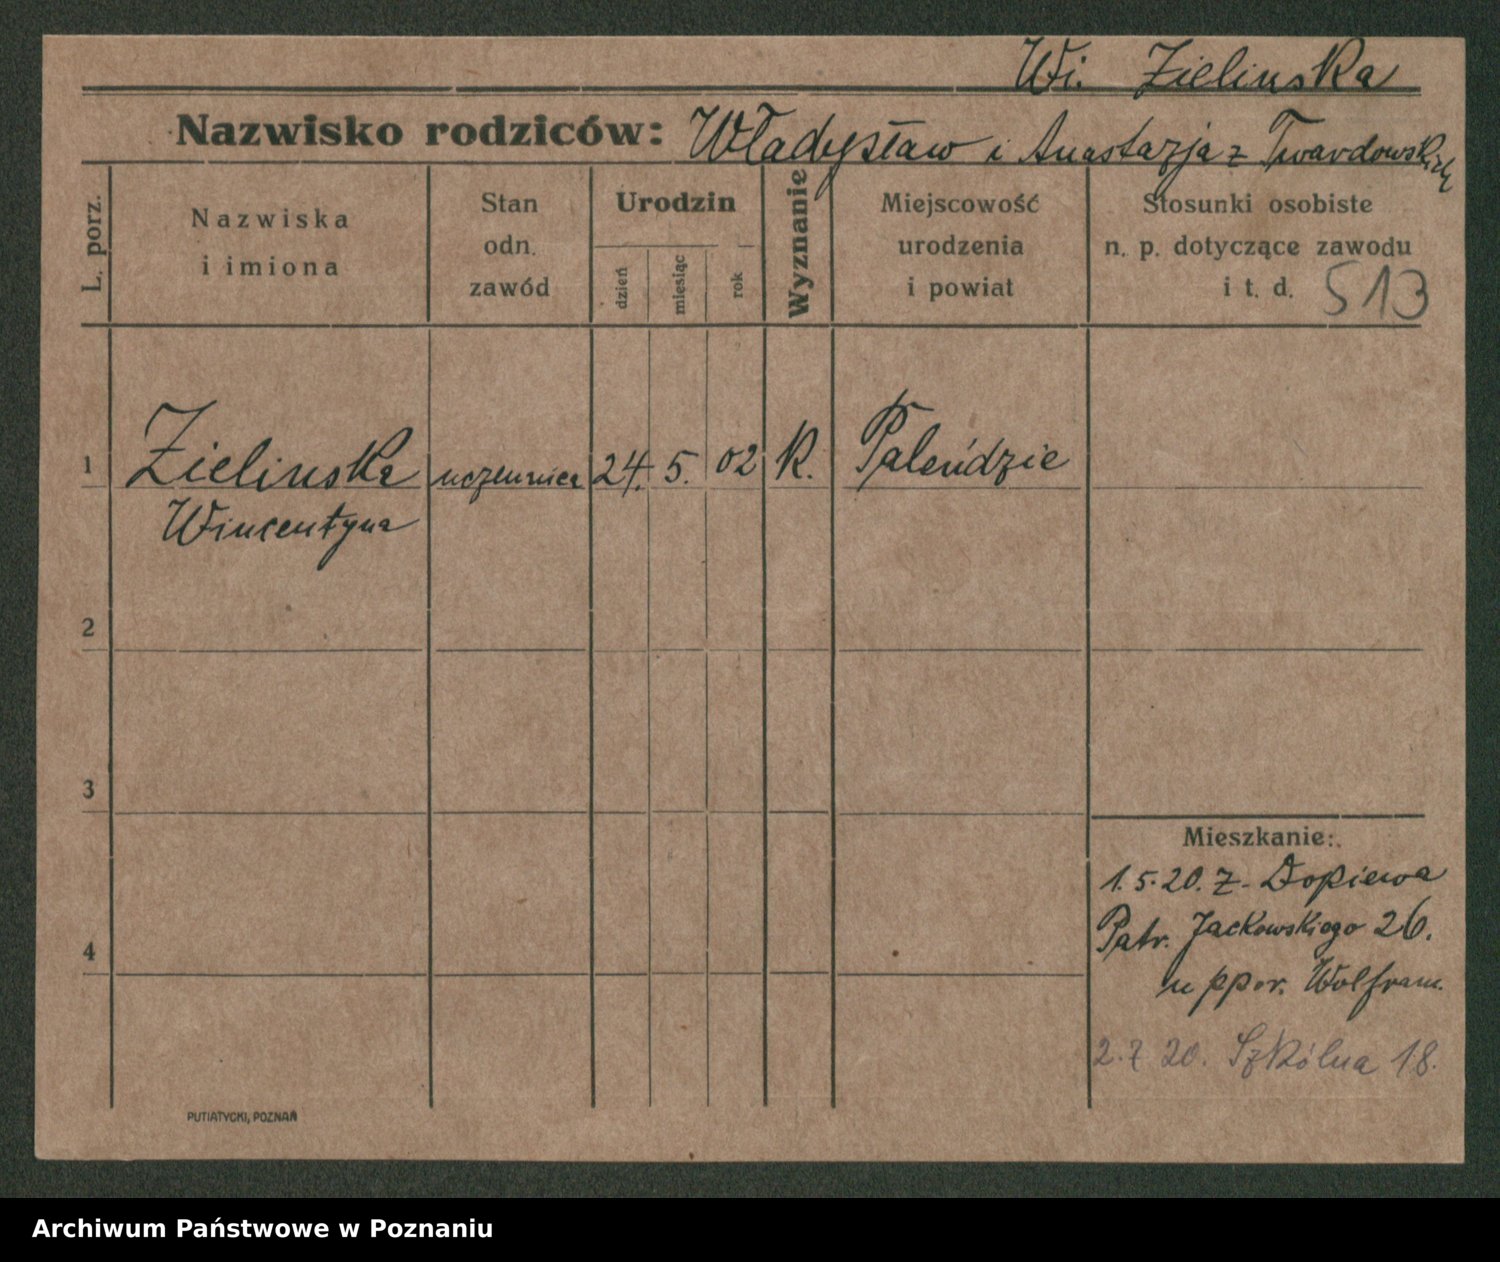 Wi. Zielinska
Nazwisko rodziców: Władysław i Anastazja z Twardowskich
L. porz.
Nazwiska
i imiona
Stan
odn.
zawód
Urodzin
dzień
miesiąc
rok
Wyznanie
Miejscowość
urodzenia
i powiat
Stosunki osobiste
n. p. dotyczące zawodu
i t. d. 513
1 Zielinska uczennica 24. 5. 02 K. Palędzie
Wincentyna
2
3
4
Mieszkanie:
1.5.20. z Dopiewa
Patr. Jackowskiego 26.
u ppor. Wolfram.
2.7 20. Szkólna 18.
PUTIATYCKI, POZNAŃ
Archiwum Państwowe w Poznaniu